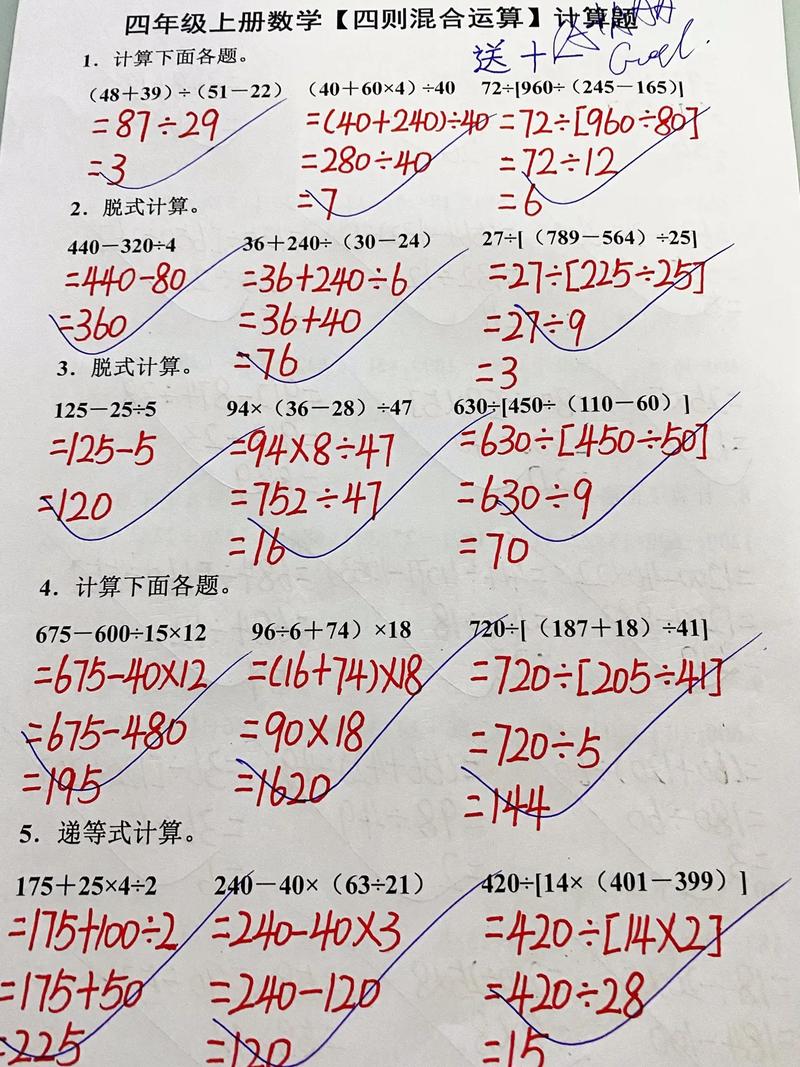 四年级上册数学【四则混合运算】计算题
送 Good.
1．计算下面各题。
（48＋39）÷（51－22） （40＋60×4）÷40 72÷[960÷（245－165）]
=87÷29 =(40+240)÷40 =72÷[960÷80]
=3 =280÷40 =72÷12
=7 =6
2．脱式计算。
440－320÷4 36＋240÷（30－24） 27÷[（789－564）÷25]
=440-80 =36+240÷6 =27÷[225÷25]
=360 =36+40 =27÷9
=76 =3
3．脱式计算。
125－25÷5 94×（36－28）÷47 630÷[450÷（110－60）]
=125-5 =94×8÷47 =630÷[450÷50]
=120 =752÷47 =630÷9
=16 =70
4．计算下面各题。
675－600÷15×12 96÷6＋74）×18 720÷[（187＋18）÷41]
=675-40×12 =(16+74)×18 =720÷[205÷41]
=675-480 =90×18 =720÷5
=195 =1620 =144
5．递等式计算。
175＋25×4÷2 240－40×（63÷21） 420÷[14×（401－399）]
=175+100÷2 =240-40×3 =420÷[14×2]
=175+50 =240-120 =420÷28
=225 =120 =15